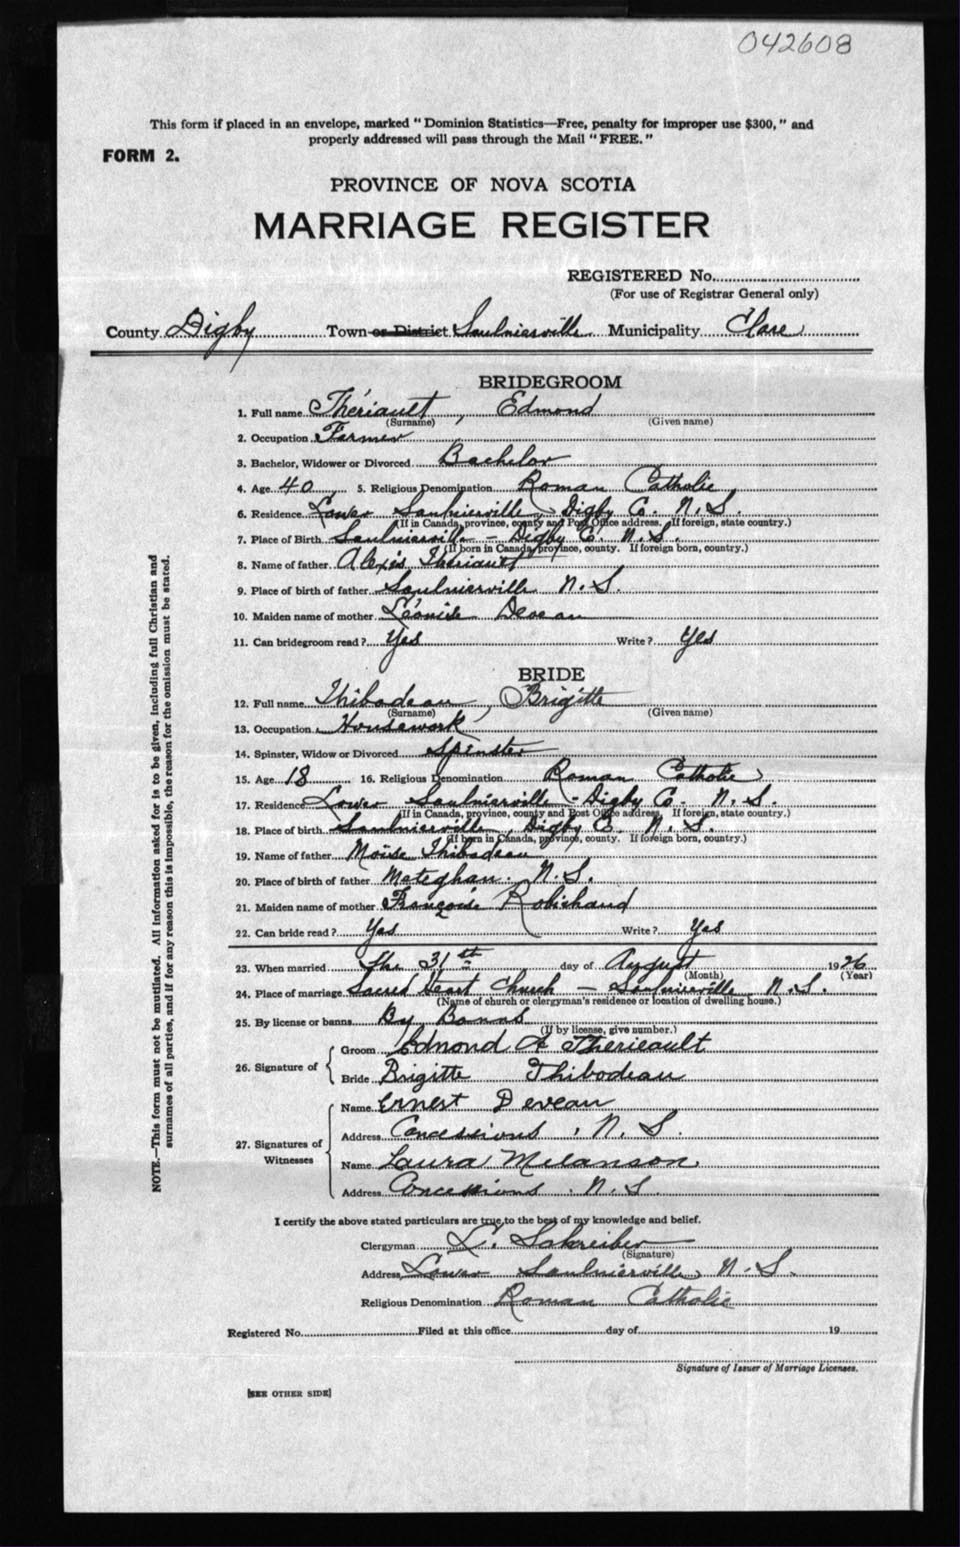 042608
This form if placed in an envelope, marked "Dominion Statistics—Free, penalty for improper use $300," and
properly addressed will pass through the Mail "FREE."
FORM 2.
PROVINCE OF NOVA SCOTIA
MARRIAGE REGISTER
REGISTERED No.
(For use of Registrar General only)
County Digby Town or District Saulnierville Municipality Clare
BRIDEGROOM
1. Full name Thériault, Edmond
(Surname) (Given name)
2. Occupation Farmer
3. Bachelor, Widower or Divorced Bachelor
4. Age 40 5. Religious Denomination Roman Catholic
6. Residence Lower Saulnierville, Digby Co. N.S.
(If in Canada, province, county and Post Office address. If foreign, state country.)
7. Place of Birth Saulnierville - Digby C. N.S.
(If born in Canada, province, county. If foreign born, country.)
8. Name of father Alexis Thériault
9. Place of birth of father Saulnierville N.S.
10. Maiden name of mother Léonise Deveau
11. Can bridegroom read? Yes Write? Yes
BRIDE
12. Full name Thibodeau, Brigitte
(Surname) (Given name)
13. Occupation Housework
14. Spinster, Widow or Divorced Spinster
15. Age 18 16. Religious Denomination Roman Catholic
17. Residence Lower Saulnierville - Digby Co. N.S.
(If in Canada, province, county and Post Office address. If foreign, state country.)
18. Place of birth Saulnierville, Digby C. N.S.
(If born in Canada, province, county. If foreign born, country.)
19. Name of father Moïse Thibodeau
20. Place of birth of father Meteghan. N.S.
21. Maiden name of mother Françoise Robichaud
22. Can bride read? Yes Write? Yes
23. When married the 31th day of August 1926
(Month) (Year)
24. Place of marriage Sacred Heart Church - Saulnierville N.S.
(Name of church or clergyman's residence or location of dwelling house.)
25. By license or banns By Banns
(If by license, give number.)
26. Signature of
Groom Edmond A Therieault
Bride Brigitte Thibodeau
27. Signatures of Witnesses
Name Ernest Deveau
Address Concessions, N.S.
Name Laura Melanson
Address Concessions. N.S.
I certify the above stated particulars are true to the best of my knowledge and belief.
Clergyman L. Schreiber
(Signature)
Address Lower Saulnierville N.S.
Religious Denomination Roman Catholic
Registered No. Filed at this office day of 19
Signature of Issuer of Marriage Licenses.
[SEE OTHER SIDE]
NOTE.—This form must not be mutilated. All information asked for is to be given, including full Christian and
surnames of all parties, and if for any reason this is impossible, the reason for the omission must be stated.